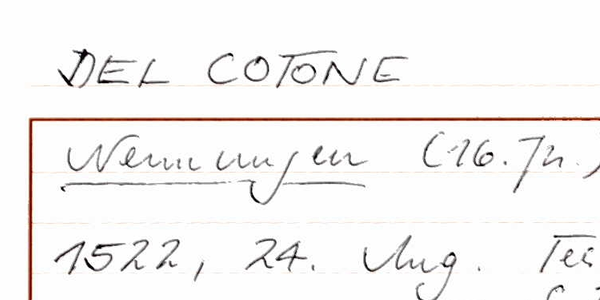 DEL COTONE
Nennungen (16. Jh.)
1522, 24. Aug. Tes